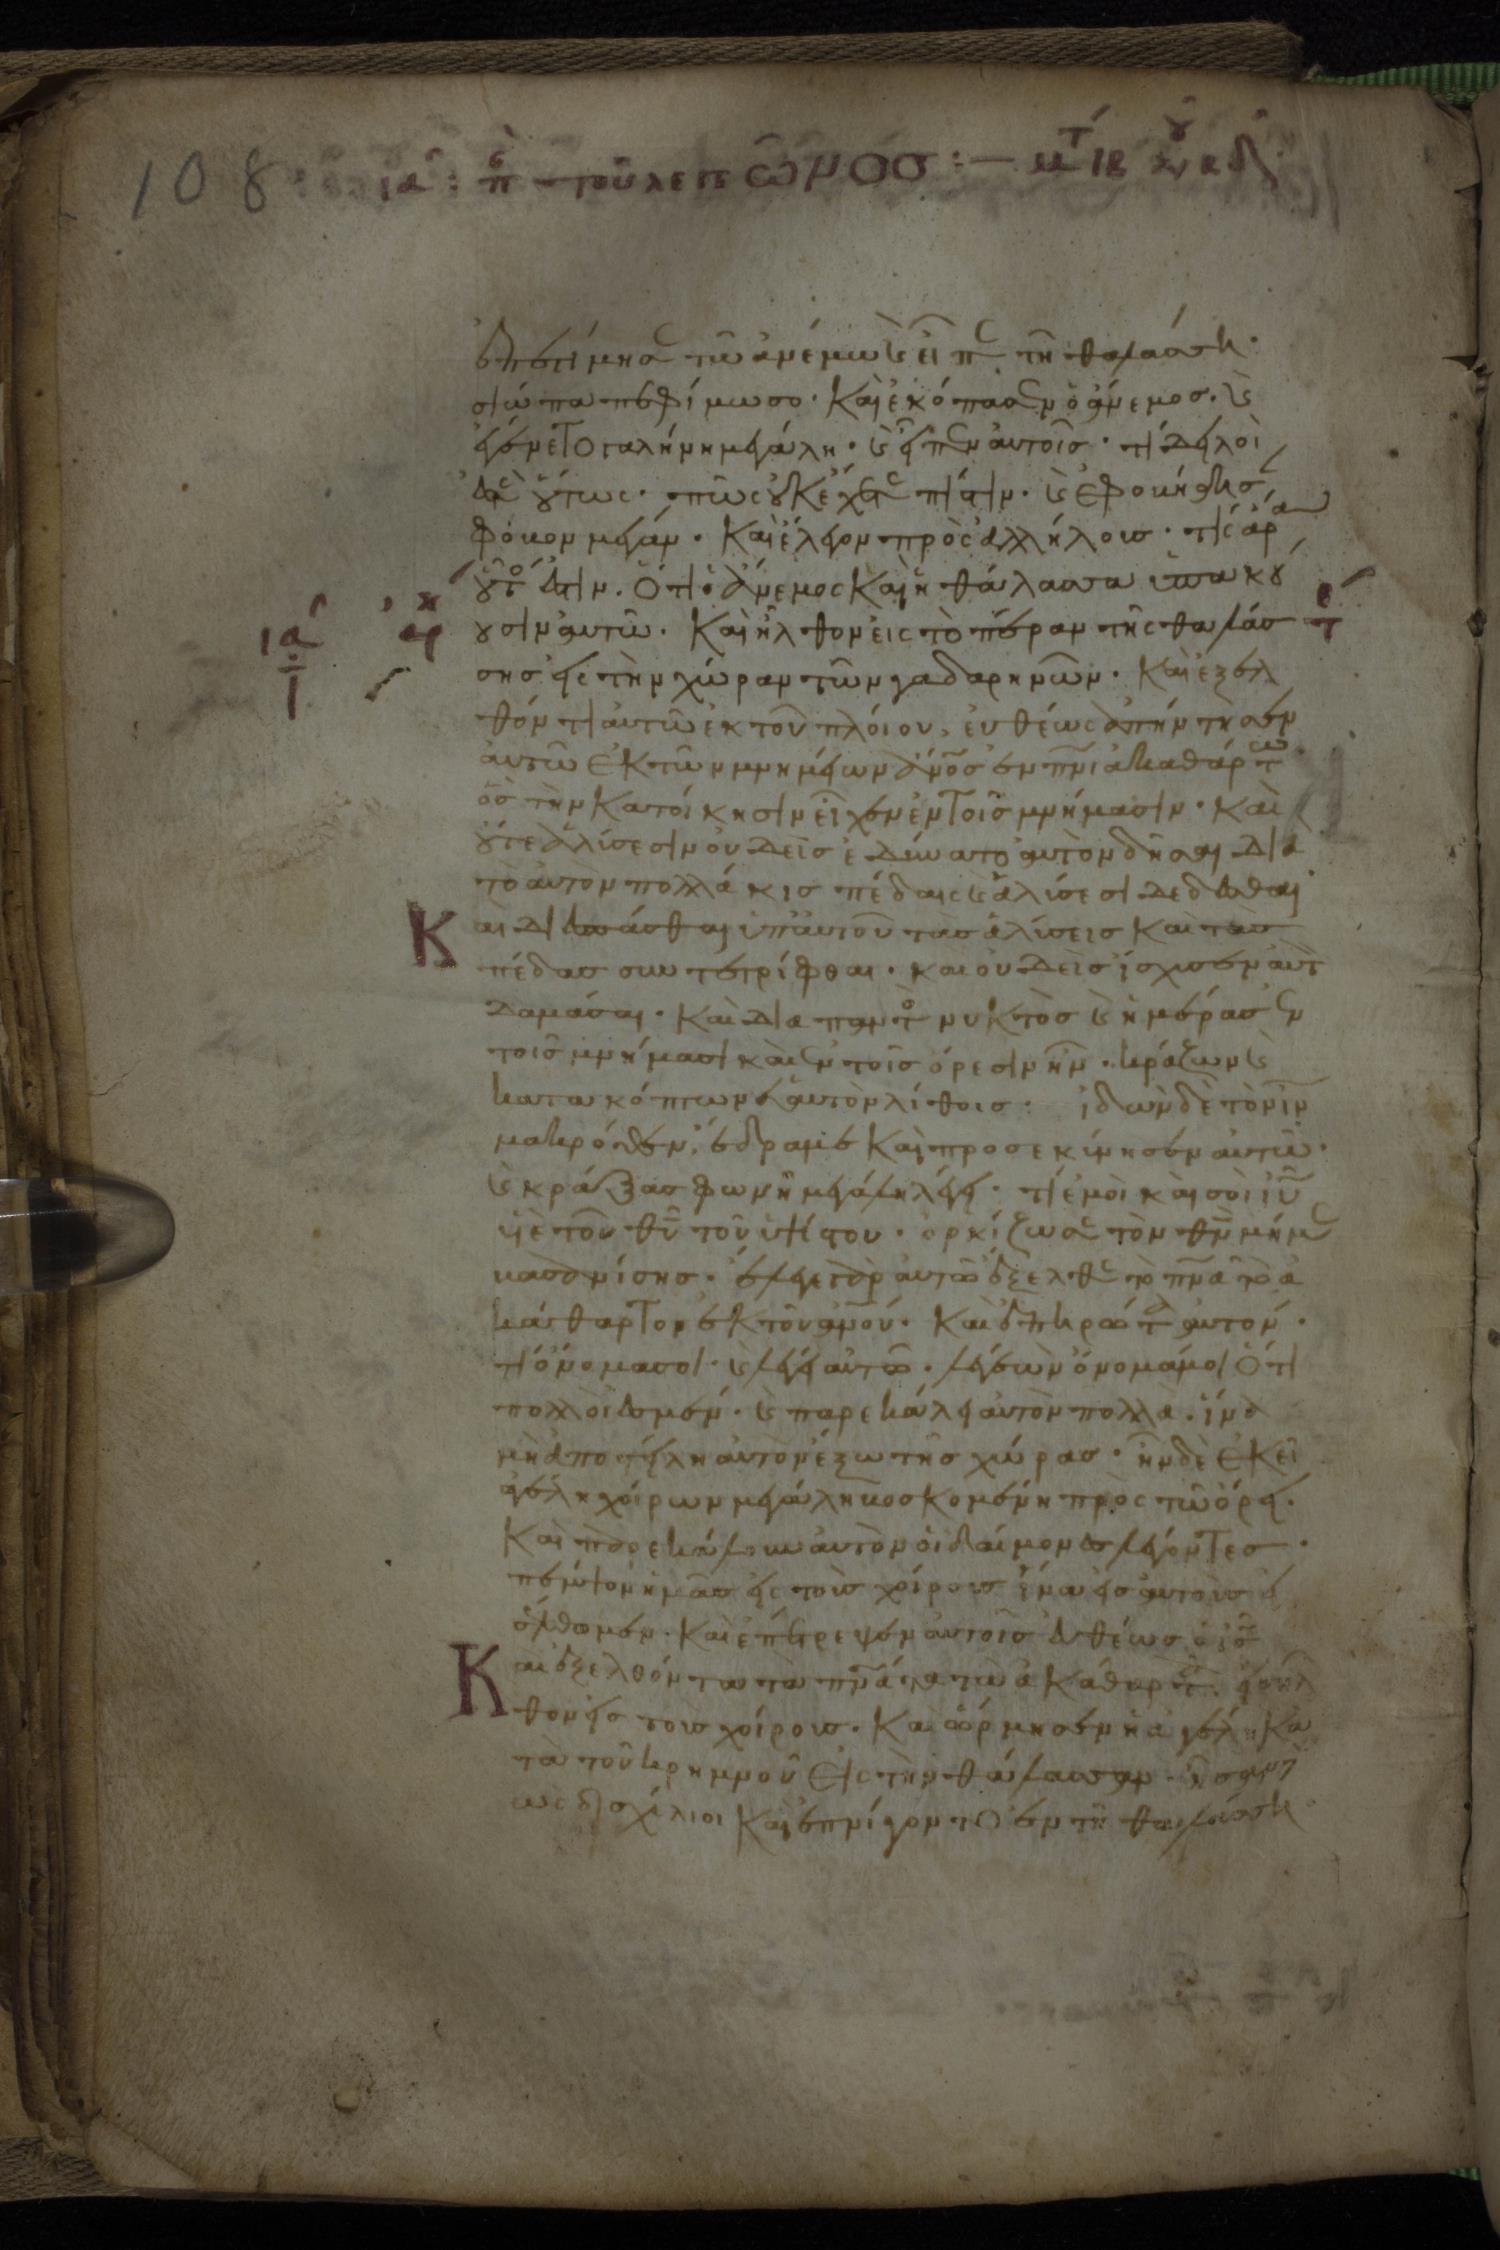 108
ια: π τοῦ λεγεῶνος :— μτ ιβ λου κδ
ἐπετίμησε τῶ ἀνέμω καὶ εἶπε τῆ θαλάσση·
σιώπα πεφίμωσο· Καὶ ἐκόπασεν ὁ ἄνεμος· καὶ
ἐγένετο γαλήνη μεγάλη· καὶ εἶπεν αὐτοῖς· τί δειλοί
ἐστε οὕτως· πῶς οὐκ ἔχετε πίστιν· καὶ ἐφοβήθησαν
φόβον μέγαν· Καὶ ἔλεγον πρὸς ἀλλήλους· τίς ἄρα
οὗτός ἐστιν· ὅτι ὁ ἄνεμος Καὶ ἡ θάλασσα ὑπακού
ουσιν αὐτῶ· Καὶ ἦλθον εἰς τὸ πέραν τῆς θαλάσ
ια ἀρχ τε
σης εἰς τὴν χώραν τῶν γαδαρηνῶν· Καὶ ἐξελ
θόντι αὐτῶ ἐκ τοῦ πλοίου, εὐθέως ἀπήντησεν
αὐτῶ ἐκ τῶν μνημείων ἄνος ἐν πνι ἀκαθάρτω
ὃς τὴν Κατοίκησιν εἶχεν ἐν τοῖς μνήμασιν· Καὶ
οὔτε ἁλύσεσιν οὐδεὶς ἐδύνατο αὐτὸν δῆσαι διὰ
τὸ αὐτὸν πολλάκις πέδαις καὶ ἁλύσεσι δεδέσθαι
Κ
αι διεσπάσθαι ὑπ' αὐτοῦ τὰς ἁλύσεις Καὶ τὰς
πέδας συντετρίφθαι· και οὐδεὶς ἴσχυσεν αὐτ
δαμάσαι· Καὶ διαπαντὸ νυκτὸς καὶ ἡμέρας ἐν
τοῖς μνήμασι καὶ ἐν τοῖς ὄρεσιν ἦν· κράζων καὶ
κατακόπτων ἑαυτὸν λίθοις· ἰδὼν δὲ τὸν ιν
μακρόθεν, ἔδραμε Καὶ προσεκύνησεν αὐτῶ·
καὶ κράξας φωνῆ μεγάλη λέγει· τί ἐμοὶ καὶ σοὶ ιυ
υἱὲ τοῦ θυ τοῦ ὑψίστου· ὁρκίζω σε τὸν θν μή με
βασανίσης· ἔλεγε γὰρ αὐτῶ ἔξελθε τὸ πνα τὸ ἀ
κάθαρτον ἐκ τοῦ ανου· Καὶ ἐπηρώτα αὐτόν·
τί ὄνομά σοι· καὶ λέγει αὐτῶ· λεγεὼν ὄνομά μοι ὅτι
πολλοί ἐσμεν· καὶ παρεκάλει αὐτὸν πολλὰ· ἵνα
μὴ ἀποστείλη αὐτὸν ἔξω τῆς χώρας· ἦν δὲ ἐκεῖ
ἀγέλη χοίρων μεγάλη βοσκομένη πρὸς τῶ ὄρει·
Καὶ παρεκάλεσαν αὐτὸν οἱ δαίμονες λέγοντες·
πέμψον ἡμᾶς εἰς τοὺς χοίρους ἵνα εἰς αὐτοὺς εἰ
σέλθωμεν· Καὶ ἐπέτρεψεν αὐτοῖς εὐθέως ὁ ις
Κ
αι ἐξελθόντα τὰ πνατα τὰ ἀκάθαρτα εἰσῆλ
θον εἰς τοὺς χοίρους· Καὶ ὥρμησεν ἡ ἀγέλη κα
τὰ τοῦ κρημνοῦ εἰς τὴν θάλασσαν· ἦσαν γὰρ
ὡς δισχίλιοι Καὶ ἐπνίγοντο ἐν τῆ θαλάσση